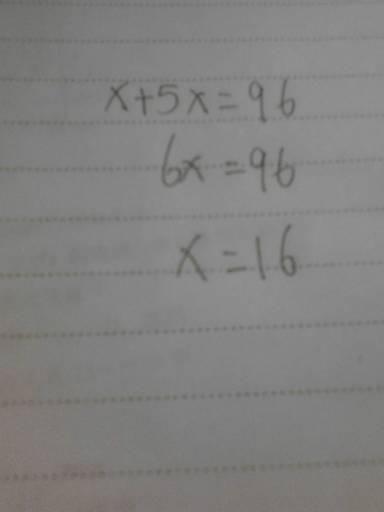 x+5x=96
6x=96
x=16